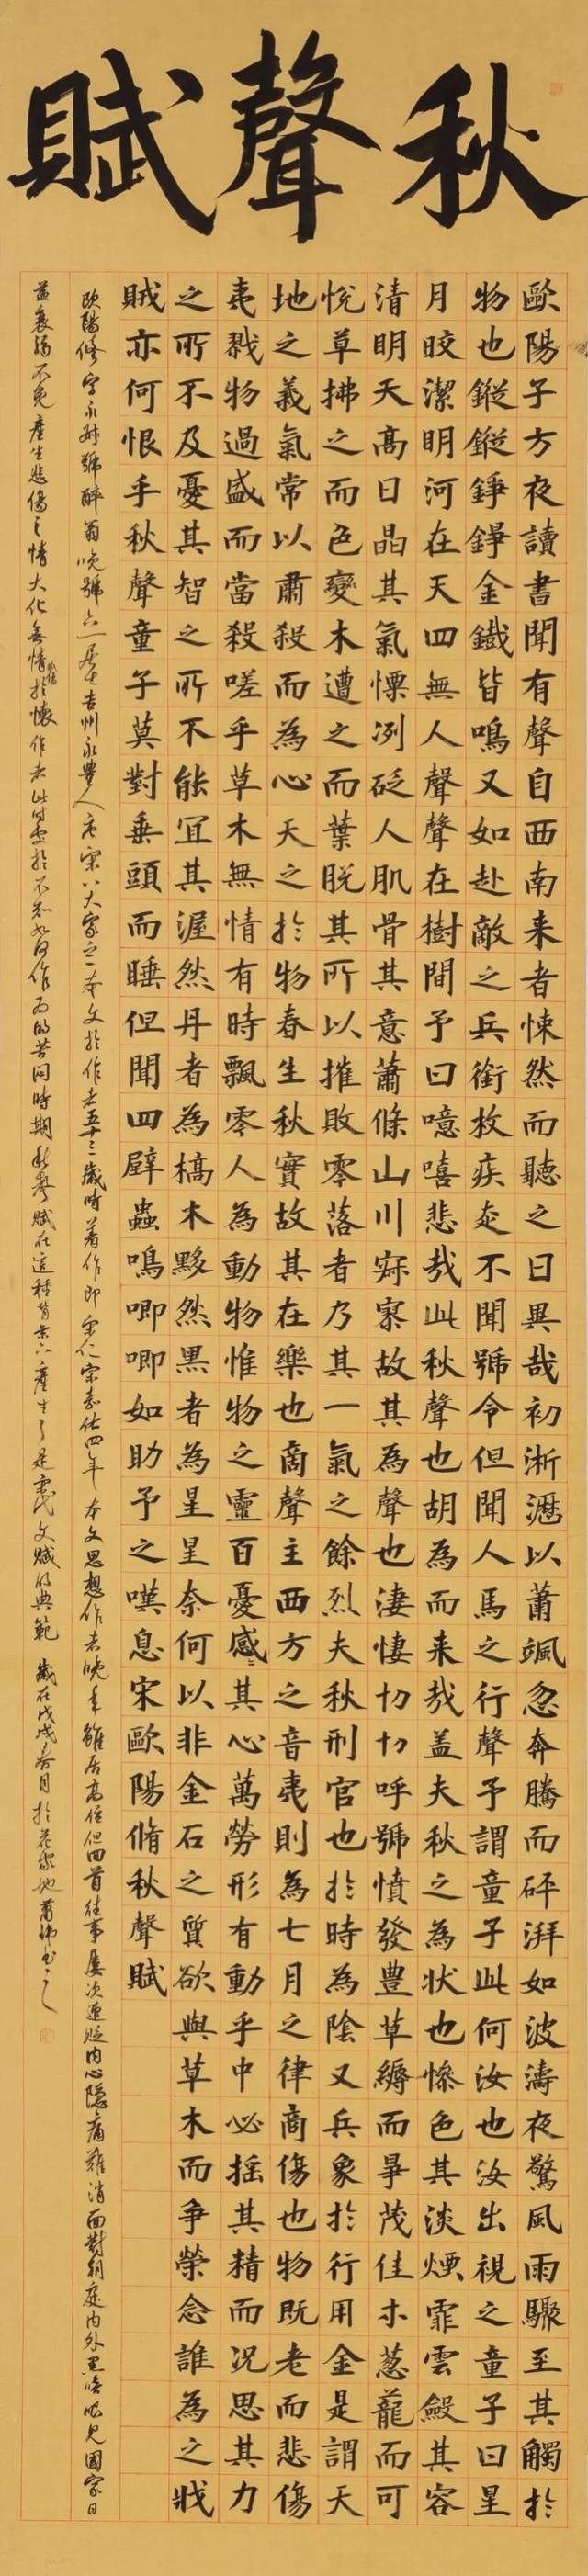 秋聲賦
歐陽子方夜讀書聞有聲自西南来者悚然而聽之曰異哉初淅瀝以蕭颯忽奔騰而砰湃如波濤夜驚風雨驟至其觸於
物也鏦鏦錚錚金鐵皆鳴又如赴敵之兵銜枚疾走不聞號令但聞人馬之行聲予謂童子此何汝也汝出視之童子曰星
月皎潔明河在天四無人聲聲在樹間予曰噫嘻悲哉此秋聲也胡為而来哉盖夫秋之為状也惨色其淡煙霏雲斂其容
清明天高日晶其氣慄冽砭人肌骨其意蕭條山川寂寥故其為聲也淒悽切切呼號憤發豊草縟而爭茂佳木葱蘢而可
悅草拂之而色變木遭之而葉脫其所以摧敗零落者乃其一氣之餘烈夫秋刑官也於時為陰又兵象於行用金是謂天
地之義氣常以肅殺而為心天之於物春生秋實故其在樂也商聲主西方之音夷則為七月之律商傷也物既老而悲傷
夷戮物過盛而當殺嗟乎草木無情有時飄零人為動物惟物之靈百憂感其心萬勞形有動乎中必搖其精而況思其力
之所不及憂其智之所不能宜其渥然丹者為槁木黟然黑者為星星奈何以非金石之質欲與草木而争榮念誰為之戕
賊亦何恨乎秋聲童子莫對垂頭而睡但聞四壁蟲鳴唧唧如助予之嘆息宋歐陽脩秋聲賦
欧陽修字永叔號醉翁晚號六一居士吉州永豊人唐宋八大家之一本文於作者五十三歲時着作即宋仁宗嘉佑四年本文思想作者晚年雖居高位但回首往事屡次遭貶内心隐痛難消面對朝庭内外黑暗眼見國家日
益衰弱不免産生悲傷之情大化無情於懷作者此時處於不知如何作为的苦闷時期秋聲賦在這種背景下産生了是宋代文賦的典範 歲在戊戌春月於